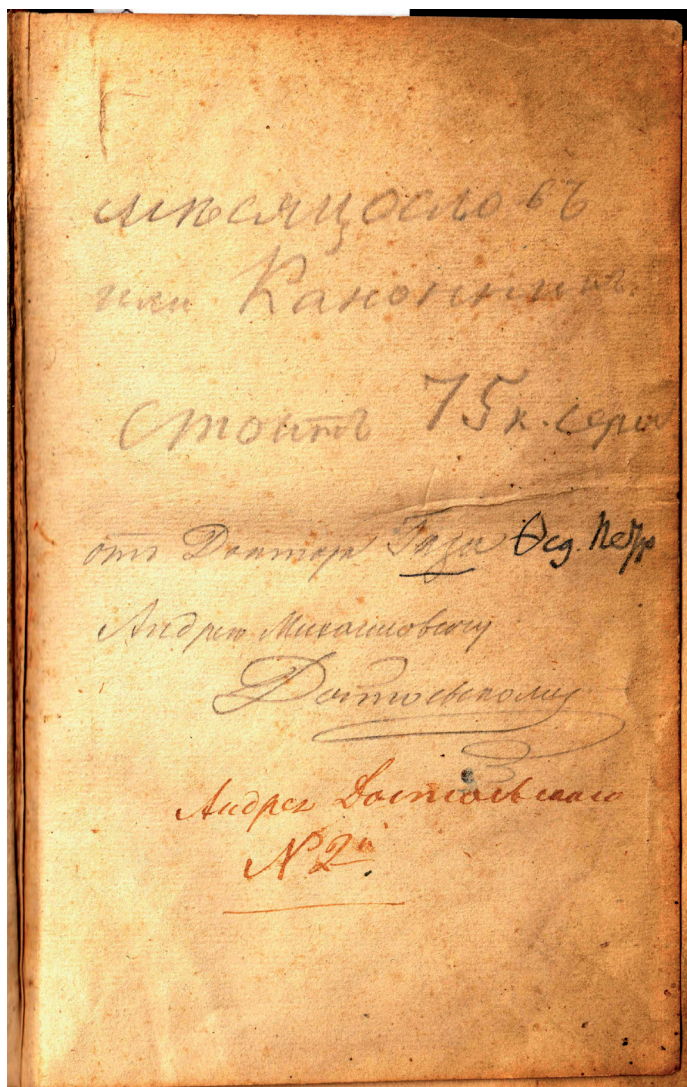 мѣсяцословъ
или Канонникъ.
стоитъ 75 к. сереб
отъ Доктора Гааза Ѳед. Петр
Андрею Михайловичу
Достоевскому
Андрея Достоевскаго
№ 2й